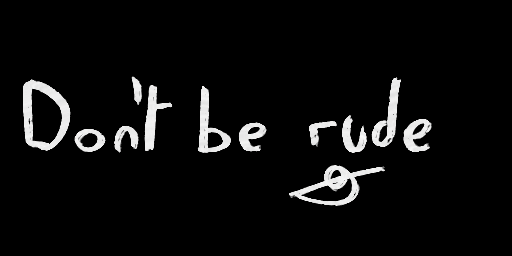 Don't be rude